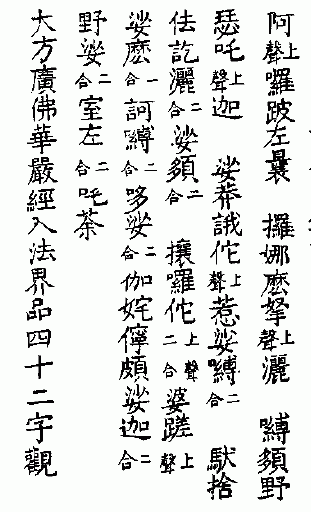 阿上聲囉跛左曩 攞娜麼拏上聲灑 嚩頦野
瑟吒上聲迦 娑莽誐佗上聲惹娑嚩二合 馱捨
佉訖灑二合 娑頦二合 攘囉佗上聲二合 婆蹉上聲
娑麼一合訶嚩二合哆娑二合伽姹儜頗娑迦二合
野娑二合室左二合吒荼
大方廣佛華嚴經入法界品四十二字觀